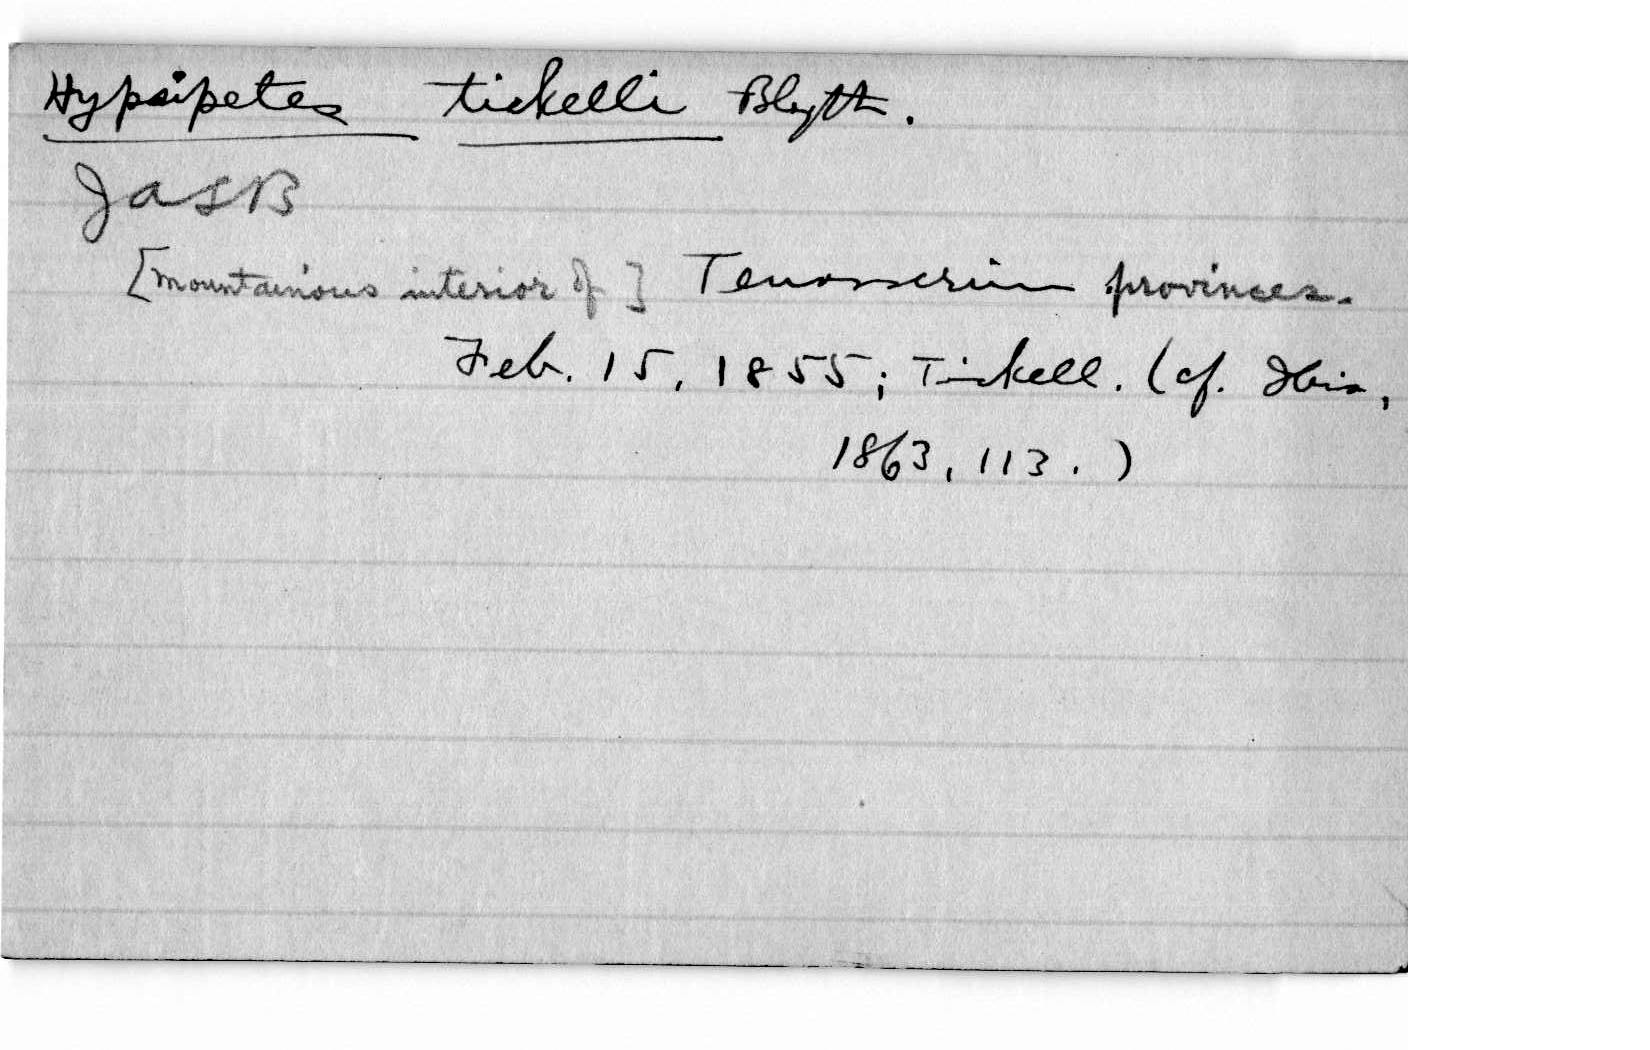 Hypsipetes tickelli Blyth.
JASB
[mountainous interior of] Tenasserim provinces.
Feb. 15, 1855; Tickell. (cf. Ibis,
1863, 113.)